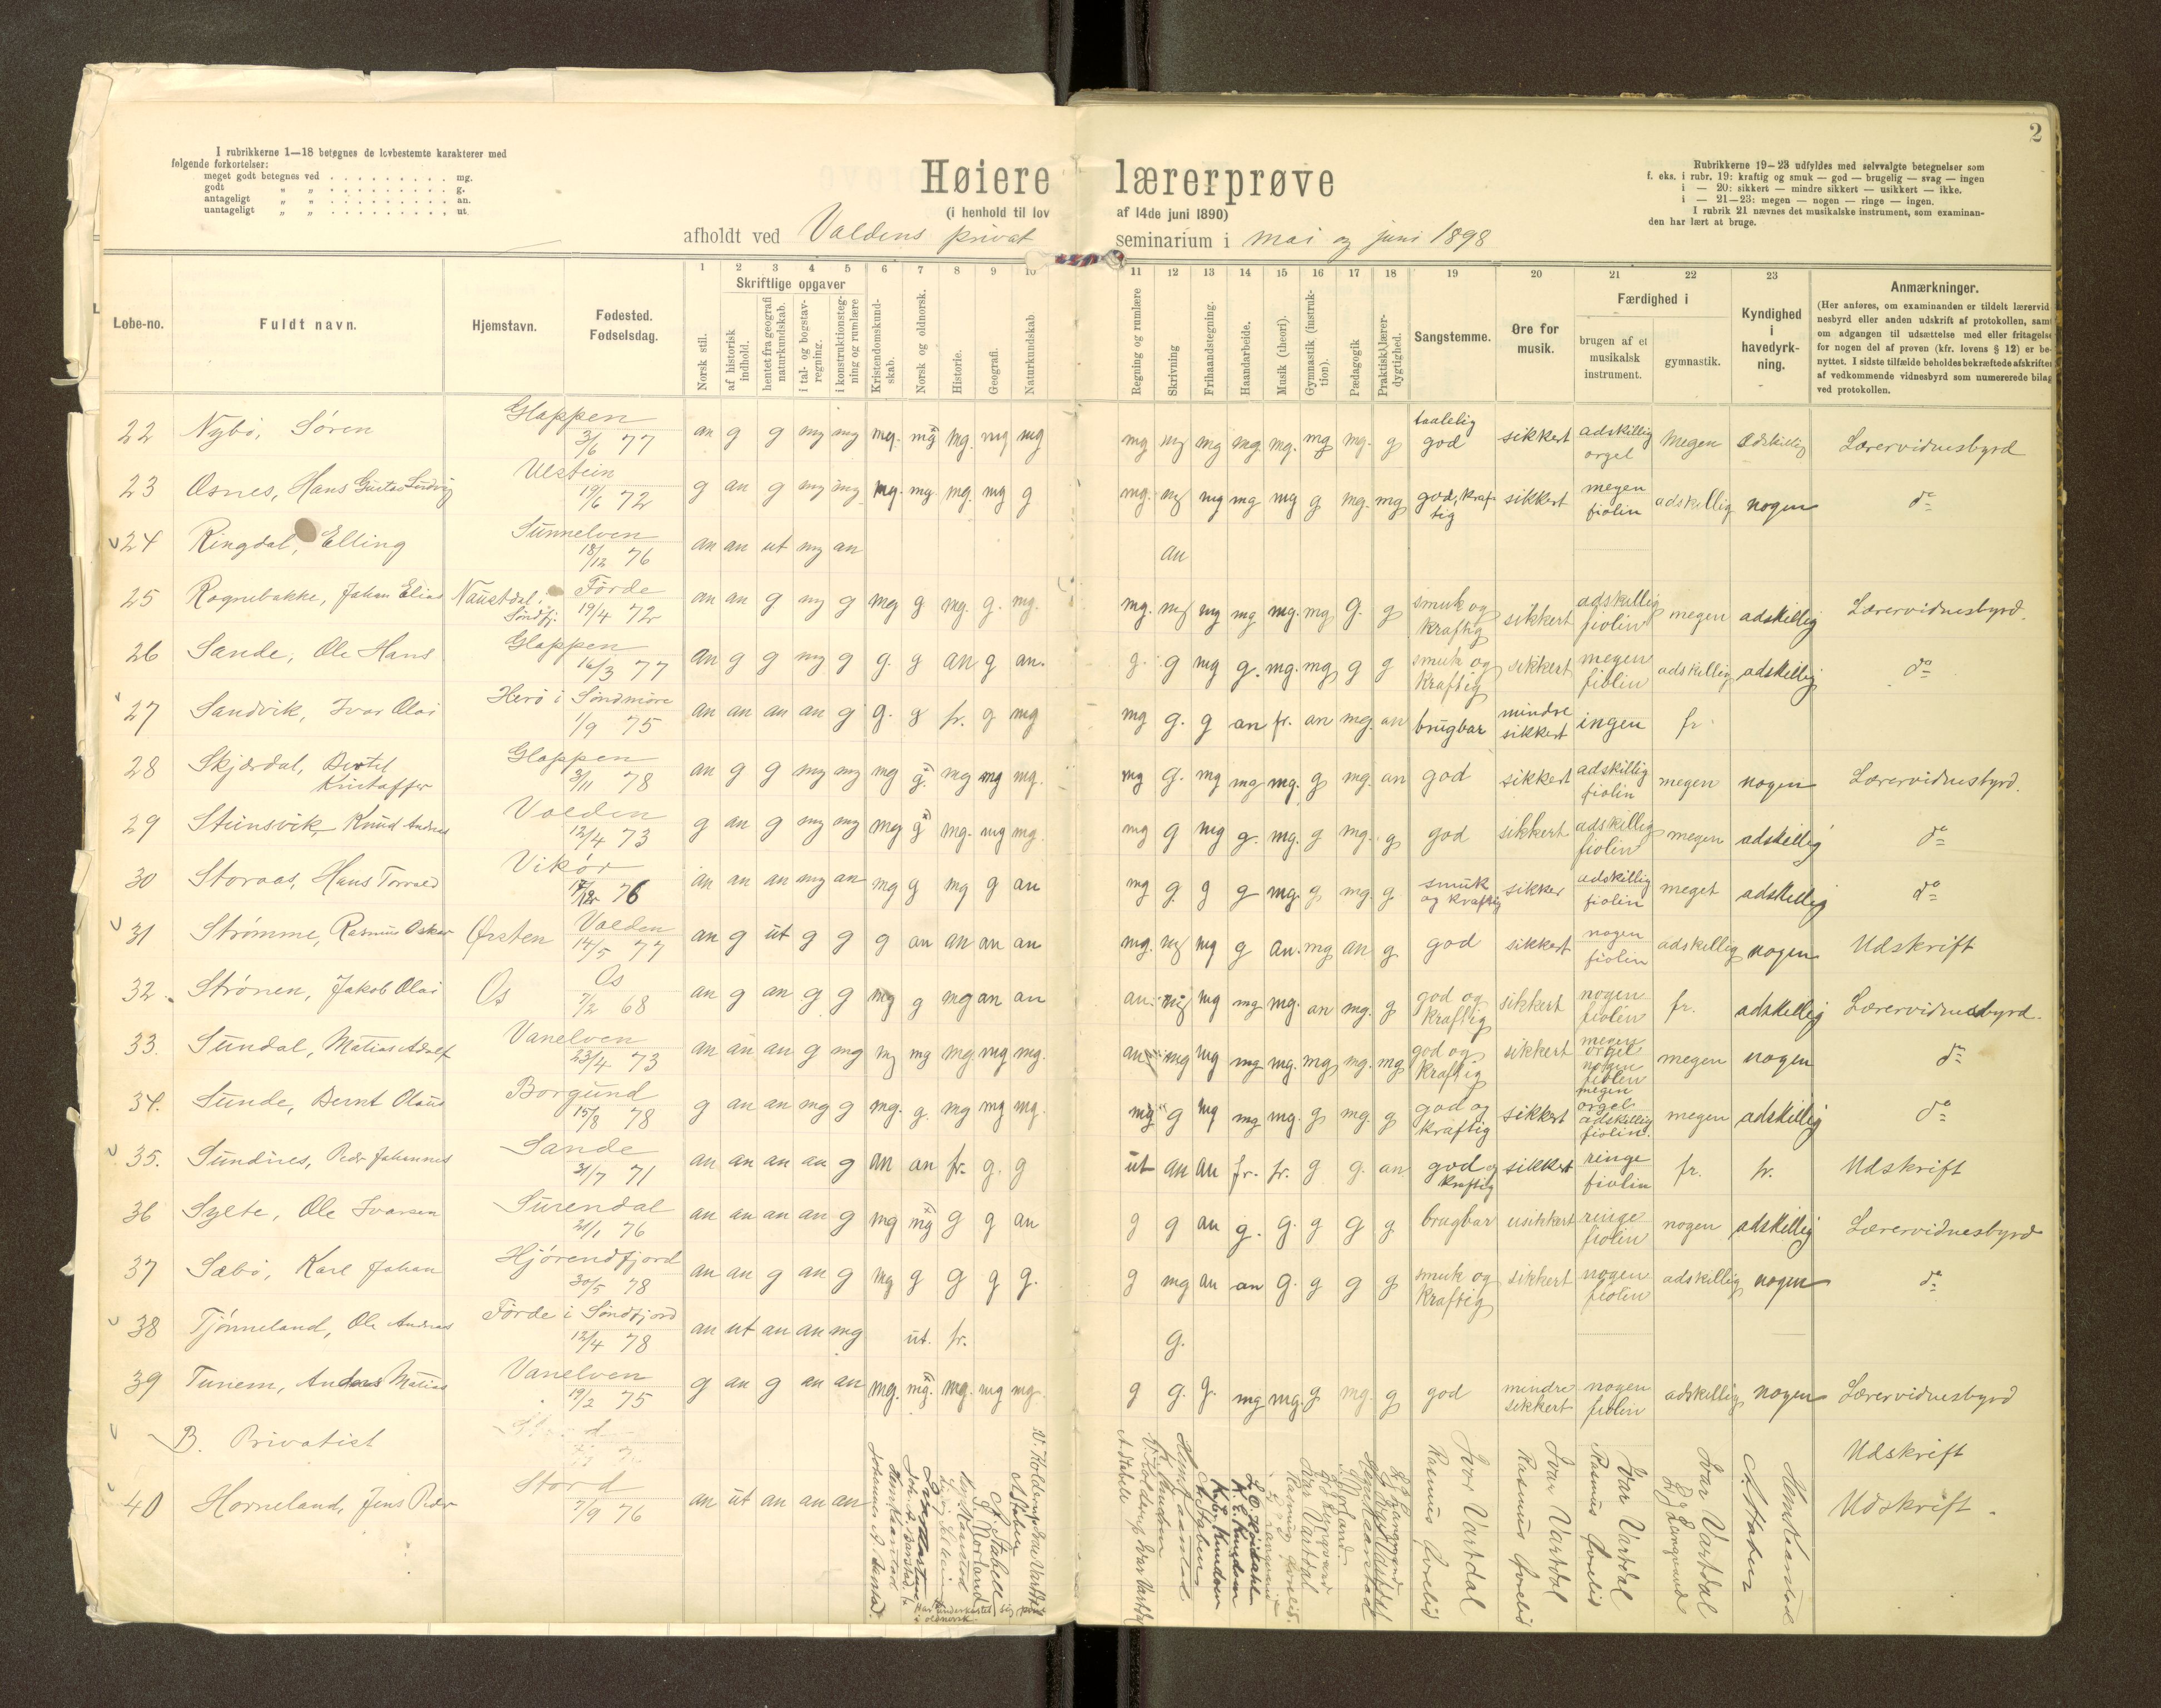 2
I rubrikkerne 1—18 betegnes de lovbestemte karakterer med
følgende forkortelser:
meget godt betegnes ved . . . . . . . . . mg.
godt " " . . . . . . . . . g.
antageligt " " . . . . . . . . . an.
uantageligt " " . . . . . . . . . ut.
Høiere lærerprøve
(i henhold til lov af 14de juni 1890)
afholdt ved Voldens privat seminarium i mai og juni 1898
Rubrikkerne 19—23 udfyldes med selvvalgte betegnelser som
f. eks. i rubr. 19: kraftig og smuk — god — brugelig — svag — ingen
i — 20: sikkert — mindre sikkert — usikkert — ikke.
i — 21—23: megen — nogen — ringe — ingen.
I rubrik 21 nævnes det musikalske instrument, som examinan-
den har lært at bruge.
Løbe-no.
Fuldt navn.
Hjemstavn.
Fødested.
Fødselsdag.
1 2 3 4 5 6 7 8 9 10 11 12 13 14 15 16 17 18 19 20 21 22 23
Skriftlige opgaver
Norsk stil.
af historisk indhold.
hentet fra geografi naturkundskab.
i tal- og bogstav-regning.
i konstruktionsteg-ning og rumlære
Kristendomskund-skab.
Norsk og oldnorsk.
Historie.
Geografi.
Naturkundskab
Regning og rumlære
Skrivning
Frihaandstegning.
Haandarbeide.
Musik (theori).
Gymnastik (instruk-tion).
Pædagogik
Praktisk lærer-dygtighed.
Sangstemme.
Øre for musik.
Færdighed i
brugen af et musikalsk instrument.
gymnastik.
Kyndighed i havedyrk-ning.
Anmærkninger.
(Her anføres, om examinanden er tildelt lærervid-
nesbyrd eller anden udskrift af protokollen, samt
om adgangen til udsættelse med eller fritagelse
for nogen del af prøven (kfr. lovens § 12) er be-
nyttet. I sidste tilfælde beholdes bekræftede afskrifter
af vedkommende vidnesbyrd som numererede bilag
ved protokollen.
22 Nybø, Søren Gloppen 3/6 77 an g g mg mg mg. mg mg. mg mg mg mg mg mg mg. mg mg. g taalelig god sikkert adskillig orgel megen adskillig Lærervidnesbyrd
23 Osnes, Hans Gustav Ludvig Ulstein 19/6 72 g an g mg mg mg. mg. mg. mg g mg. mg mg mg mg g mg. mg god, kraftig sikkert megen fiolin adskillig nogen do
24 Ringdal, Elling Sunnelven 18/12 76 an an ut mg an an
25 Rognebakke, Johan Elias Naustdal, Søndfj. Førde 19/4 72 an an g mg g mg g mg. g. mg. mg. mg mg mg mg. mg g. g smuk og kraftig sikkert adskillig fiolin megen adskillig Lærervidnesbyrd.
26 Sande, Ole Hans Gloppen 16/3 77 an g g mg g g. g an g an. g. g mg g. mg. mg g g smuk og kraftig sikkert megen fiolin adskillig adskillig do
27 Sandvik, Ivar Olai Herø i Søndmøre 1/9 75 an an an an g g. g fr. g mg mg g. g an fr. an mg. an brugbar mindre sikkert ingen fr.
28 Skjærdal, Bertel Kristoffer Gloppen 3/11 78 an g g mg mg mg g. mg mg mg. mg g. mg mg mg. g mg. an god sikkert adskillig fiolin megen nogen Lærervidnesbyrd.
29 Steinsvik, Knud Andreas Volden 12/4 73 g an g mg mg mg g mg. mg mg. mg g mg g. mg. g mg. g god sikkert adskillig fiolin megen adskillig do
30 Storaas, Hans Torvald Vikør 17/12 76 an an an mg an mg g mg g an mg g. g g mg. g mg g. smuk og kraftig sikker adskillig fiolin meget adskillig do
31 Strømme, Rasmus Oskar Ørsten Volden 14/5 77 an g ut g g g an an an an mg. mg mg g an. mg an g. god sikkert nogen fiolin adskillig nogen Udskrift
32. Strønen, Jakob Olai Os Os 7/2 68 an g an g g mg g mg an an an. mg mg mg mg. an mg. g god og kraftig sikkert nogen fiolen fr. adskillig Lærervidnesbyrd.
33. Sundal, Matias Adolf Vanelven 23/4 73 an an an g mg mg mg mg mg mg. an mg mg mg mg. mg mg. mg god og kraftig sikkert megen orgel nogen fiolen megen nogen do
34. Sunde, Bernt Olaus Borgund 15/8 78 g an an mg g mg. g. mg mg mg. mg g mg mg mg. g mg. g god og kraftig sikkert megen orgel adskillig fiolin. megen adskillig do
35. Sundnes, Peder Johannes Sande 31/7 71 an an an an g an an fr. g. g ut an an fr. fr. g g. an god og kraftig sikkert ringe fiolin fr. fr. Udskrift
36 Sylte, Ole Ivarsen Surendal 21/1 76 an an an an g mg mg g g an g g an g. g. g g g brugbar usikkert ringe fiolin nogen adskillig Lærervidnesbyrd
37 Sæbø, Karl Johan Hjørendfjord 30/5 78 an an g an g mg g g g g. g mg an an g. g g g smuk og kraftig sikkert nogen fiolin adskillig nogen do
38 Tjønneland, Ole Andreas Førde i Søndfjord 12/4 78 an ut an an mg ut. fr. g.
39 Tunem, Anders Matias Vanelven 19/2 75 g an g an an mg. mg. mg. mg mg. g g. g. mg mg. g mg. g god mindre sikkert nogen fiolin adskillig nogen Lærervidnesbyrd
B. Privatist Udskrift
40 Horneland, Jens Peder Stord 7/9 76 an ut an an an Udskrift.
Ivar Vartdal
Rasmus
Ivar Vartdal
Rasmus
Ivar Vartdal
Rasmus
Ivar Vartdal
Har underkastet sig prøve
i oldnorsk.